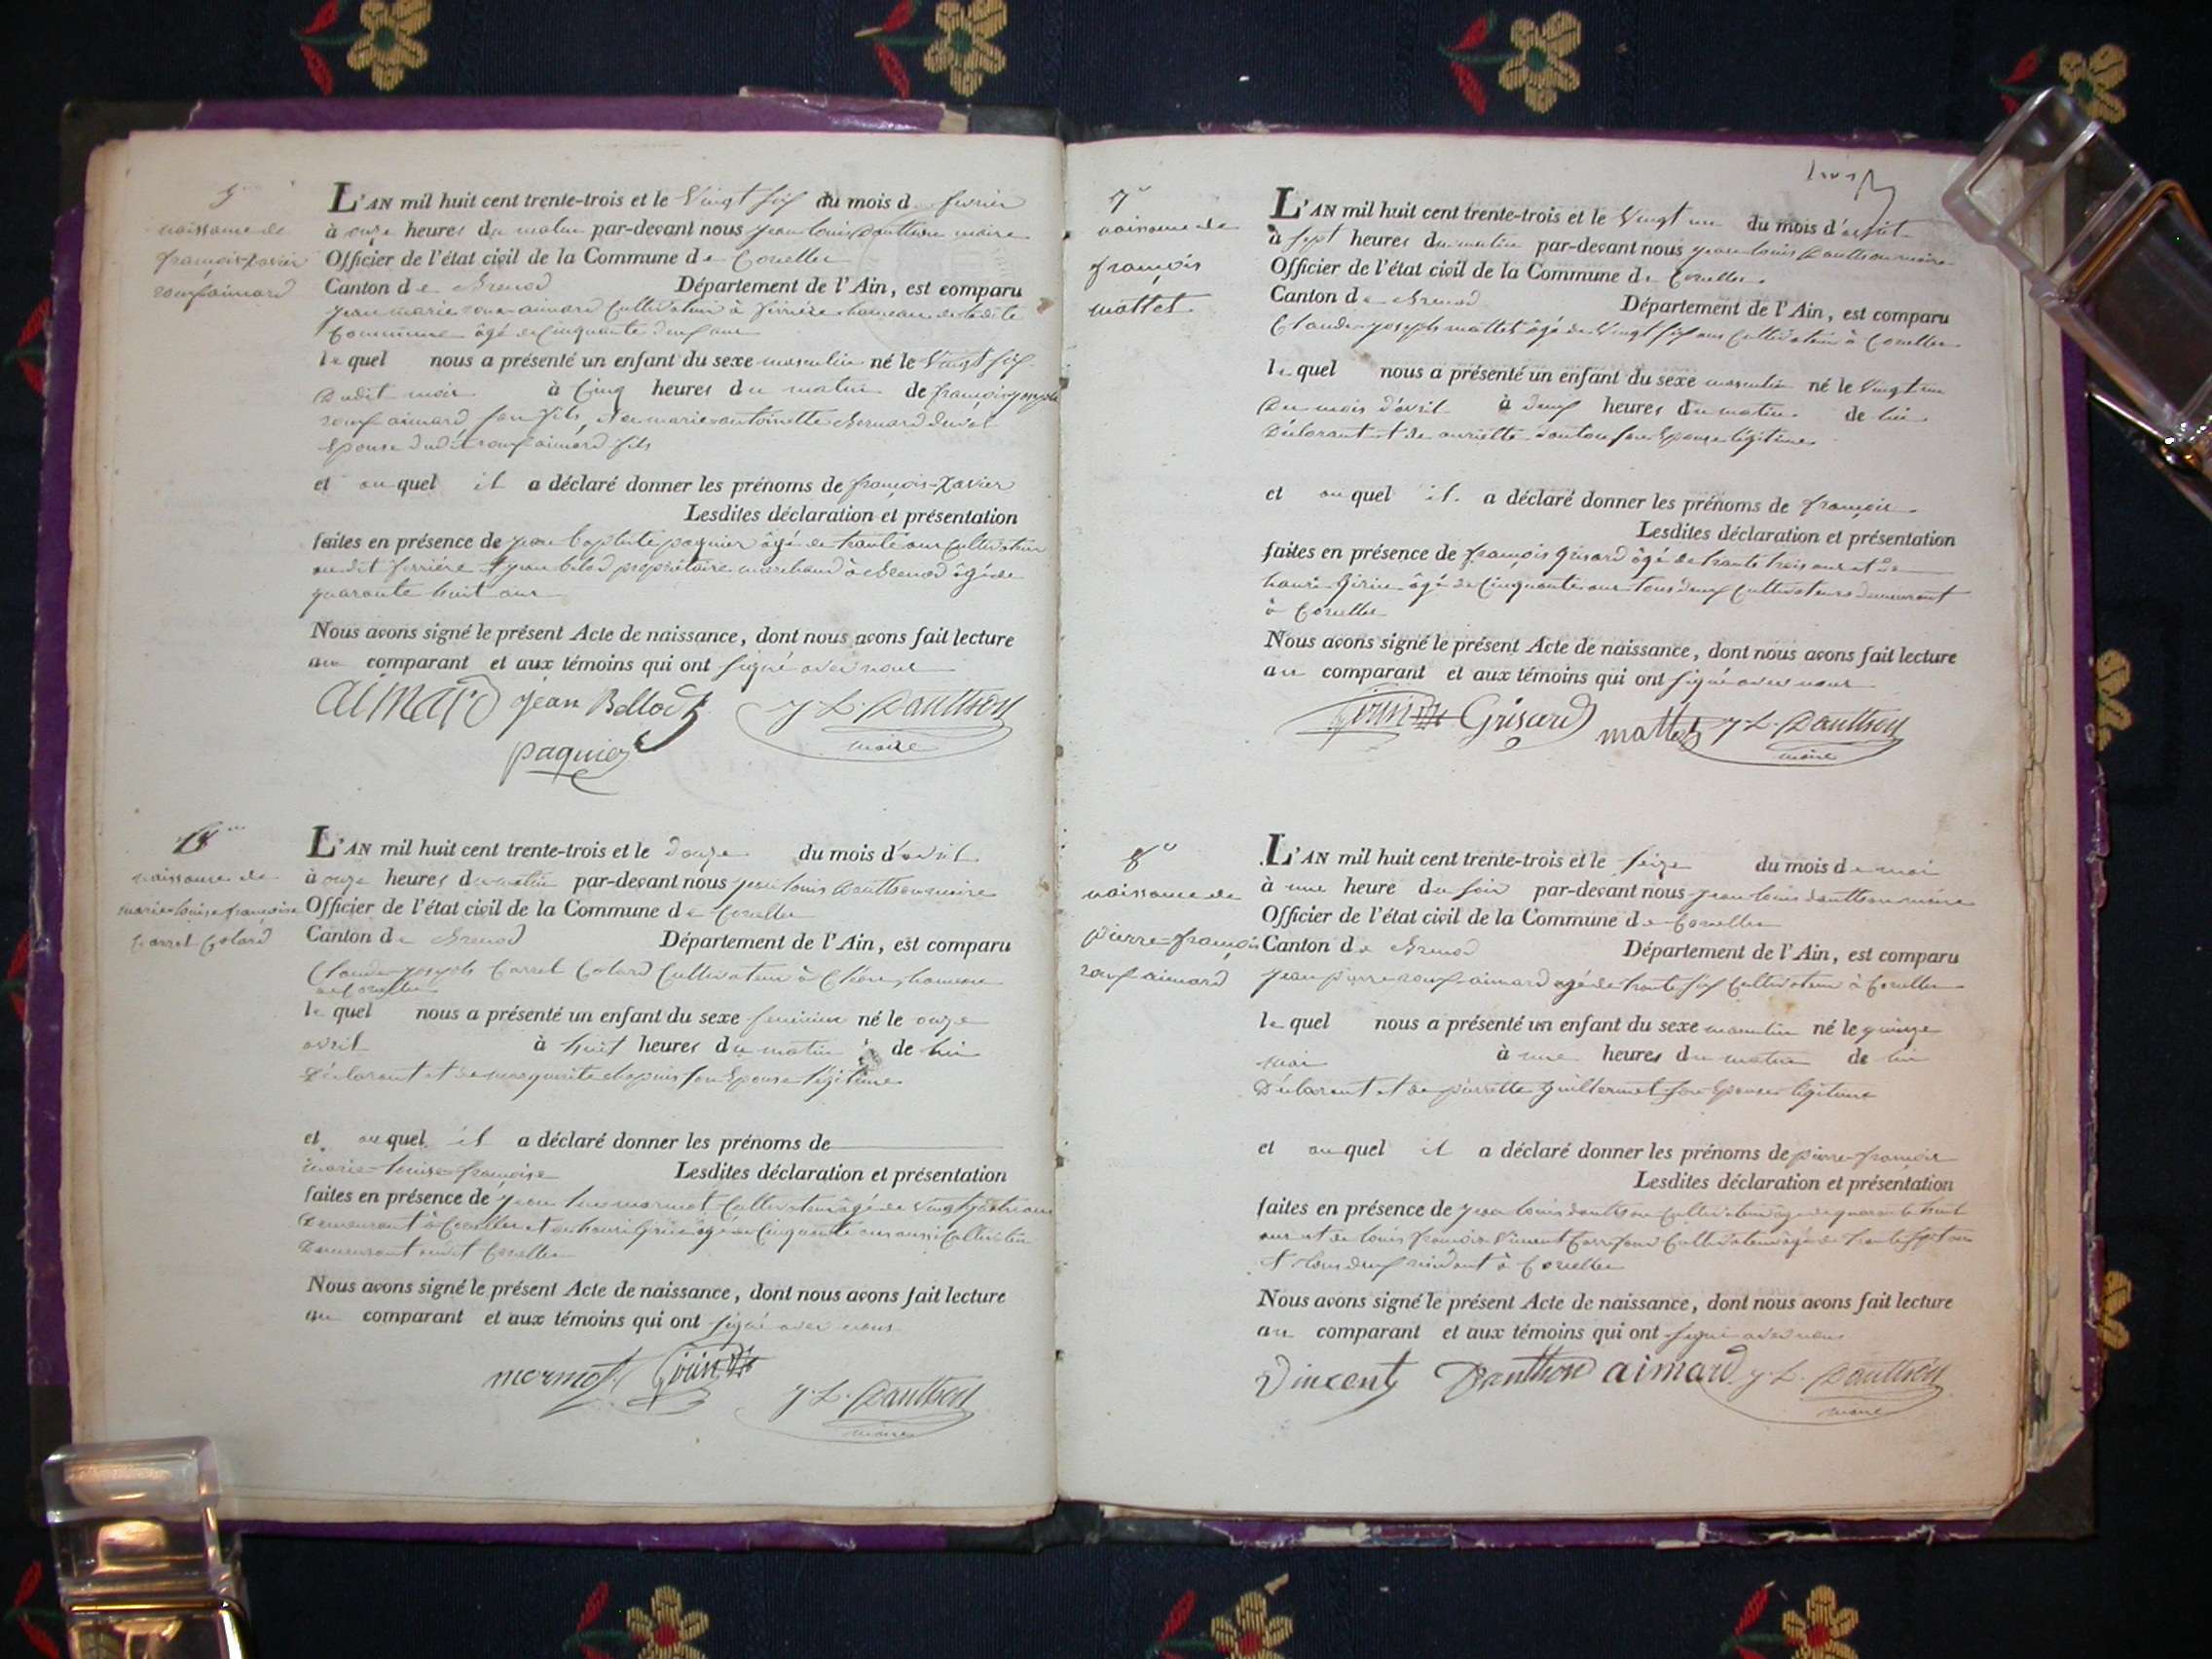 5
naissance de
françois-xavier
roux aimard
L'AN mil huit cent trente-trois et le Vingt six du mois de février
à onze heures du matin par-devant nous jean louis dauthon maire
Officier de l'état civil de la Commune de Corcelles
Canton de Brenod Département de l'Ain, est comparu
jean marie roux-aimard Cultivateur à ferrière hameau de ladite
Commune âgé de Cinquante deux ans
lequel nous a présenté un enfant du sexe masculin né le Vingt six
dudit mois à Cinq heures du matin de françois joseph
roux aimard son fils, et de marie antoinette Bernard
Epouse dudit roux aimard fils
et auquel il a déclaré donner les prénoms de françois-Xavier
Lesdites déclaration et présentation
faites en présence de jean baptiste paquier âgé de trente ans Cultivateur
audit ferrière et jean propriétaire marchand à Brenod âgé de
quarante huit ans
Nous avons signé le présent Acte de naissance, dont nous avons fait lecture
au comparant et aux témoins qui ont signé avec nous
aimard jean Bellod J. L. Dauthon
paquier maire
6
naissance de
marie-louise françoise
Carrel Colard
L'AN mil huit cent trente-trois et le douze du mois d'avril
à onze heures du matin par-devant nous jean louis dauthon maire
Officier de l'état civil de la Commune de Corcelles
Canton de Brenod Département de l'Ain, est comparu
Claude-joseph Carrel Colard Cultivateur à hameau
de Corcelles
lequel nous a présenté un enfant du sexe feminin né le onze
avril à huit heures du matin de lui
Déclarant et de marguerite chapuis son Epouse légitime
et auquel il a déclaré donner les prénoms de
marie-louise-françoise Lesdites déclaration et présentation
faites en présence de jean mermot Cultivateur âgé de Vingt quatre ans
Demeurant à Corcelles et de henri Girin âgé de Cinquante ans aussi Cultivateur
Demeurant audit Corcelles
Nous avons signé le présent Acte de naissance, dont nous avons fait lecture
au comparant et aux témoins qui ont signé avec nous
mermot Girin
J. L. Dauthon
maire
7
naissance de
françois
mattet
L'AN mil huit cent trente-trois et le Vingt un du mois d'avril
à sept heures du matin par-devant nous jean louis dauthon maire
Officier de l'état civil de la Commune de Corcelles
Canton de Brenod Département de l'Ain, est comparu
Claude-joseph mattet âgé de Vingt six ans Cultivateur à Corcelles
lequel nous a présenté un enfant du sexe masculin né le Vingt un
du mois d'avril à deux heures du matin de lui
Déclarant et de son Epouse légitime
et auquel il a déclaré donner les prénoms de françois
Lesdites déclaration et présentation
faites en présence de françois Grisard âgé de trente trois ans et de
henri Girin âgé de Cinquante ans tous deux Cultivateurs demeurant
à Corcelles
Nous avons signé le présent Acte de naissance, dont nous avons fait lecture
au comparant et aux témoins qui ont signé avec nous
Girin Grisard mattet J. L. Dauthon
maire
8
naissance de
pierre-françois
roux aimard
L'AN mil huit cent trente-trois et le seize du mois de mai
à une heure du soir par-devant nous jean louis dauthon maire
Officier de l'état civil de la Commune de Corcelles
Canton de Brenod Département de l'Ain, est comparu
jean pierre roux-aimard agé de trente six Cultivateur à Corcelles
lequel nous a présenté un enfant du sexe masculin né le quinze
mai à une heures du matin de lui
Déclarant et de pierrette Guillermet son Epouse légitime
et auquel il a déclaré donner les prénoms de pierre-françois
Lesdites déclaration et présentation
faites en présence de jean louis dauthon Cultivateur âgé de quarante huit
ans et de louis françois Vincent Cultivateur âgé de trente sept ans
et tous deux résidant à Corcelles
Nous avons signé le présent Acte de naissance, dont nous avons fait lecture
au comparant et aux témoins qui ont signé avec nous
Vincent Danthon aimard J. L. Dauthon
maire